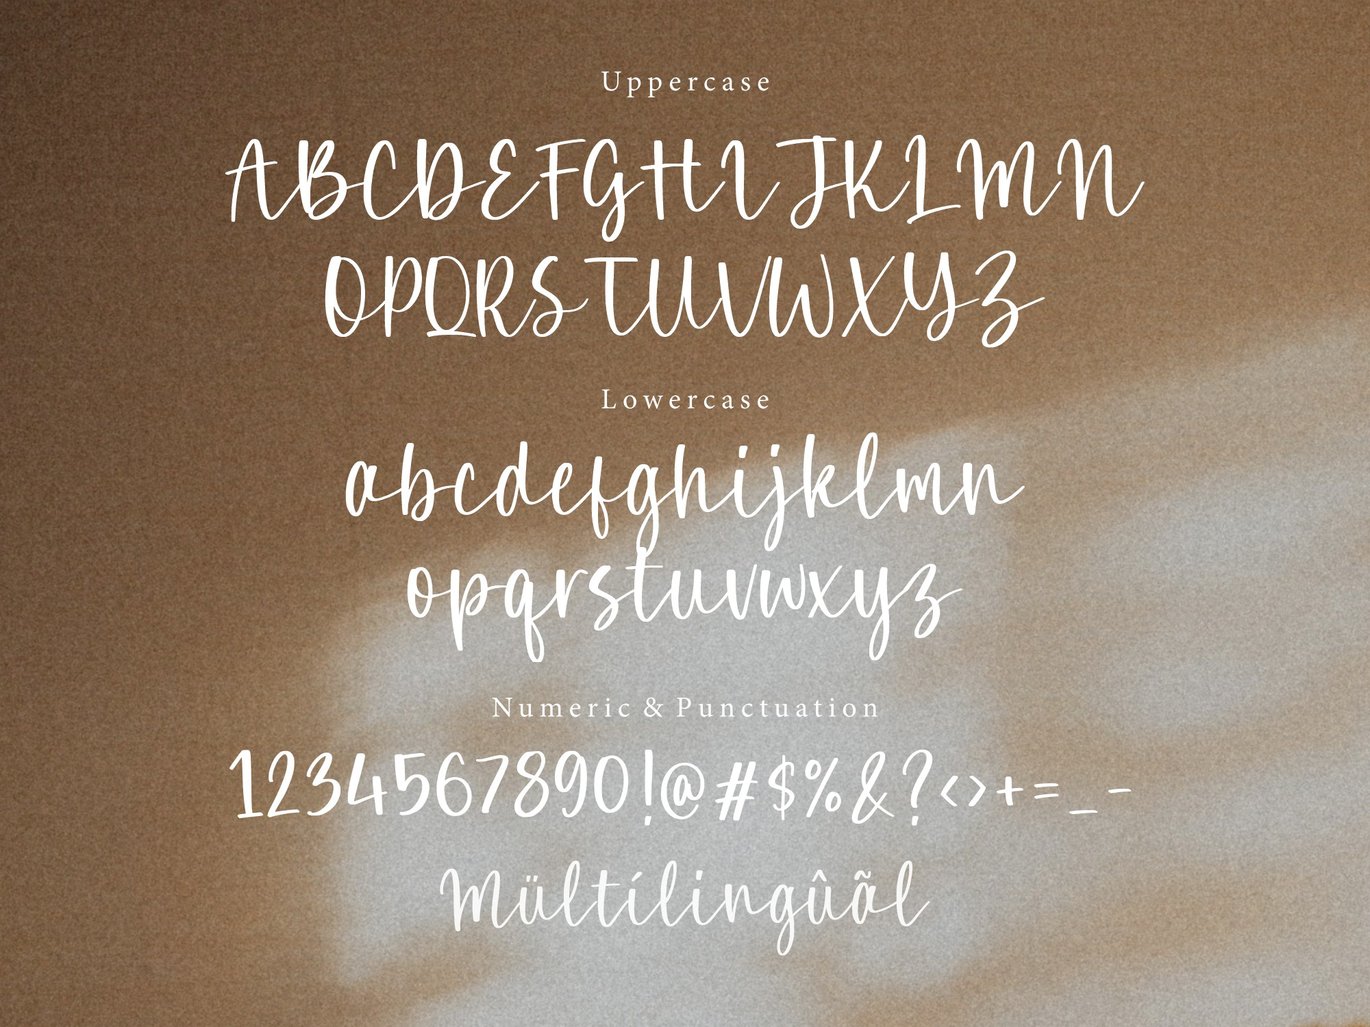 Uppercase
ABCDEFGHIJKLMN
OPQRSTUVWXYZ
Lowercase
abcdefghijklmn
opqrstuvwxyz
Numeric & Punctuation
1234567890!@#$%&?<>+=_-
Mültílingûãl